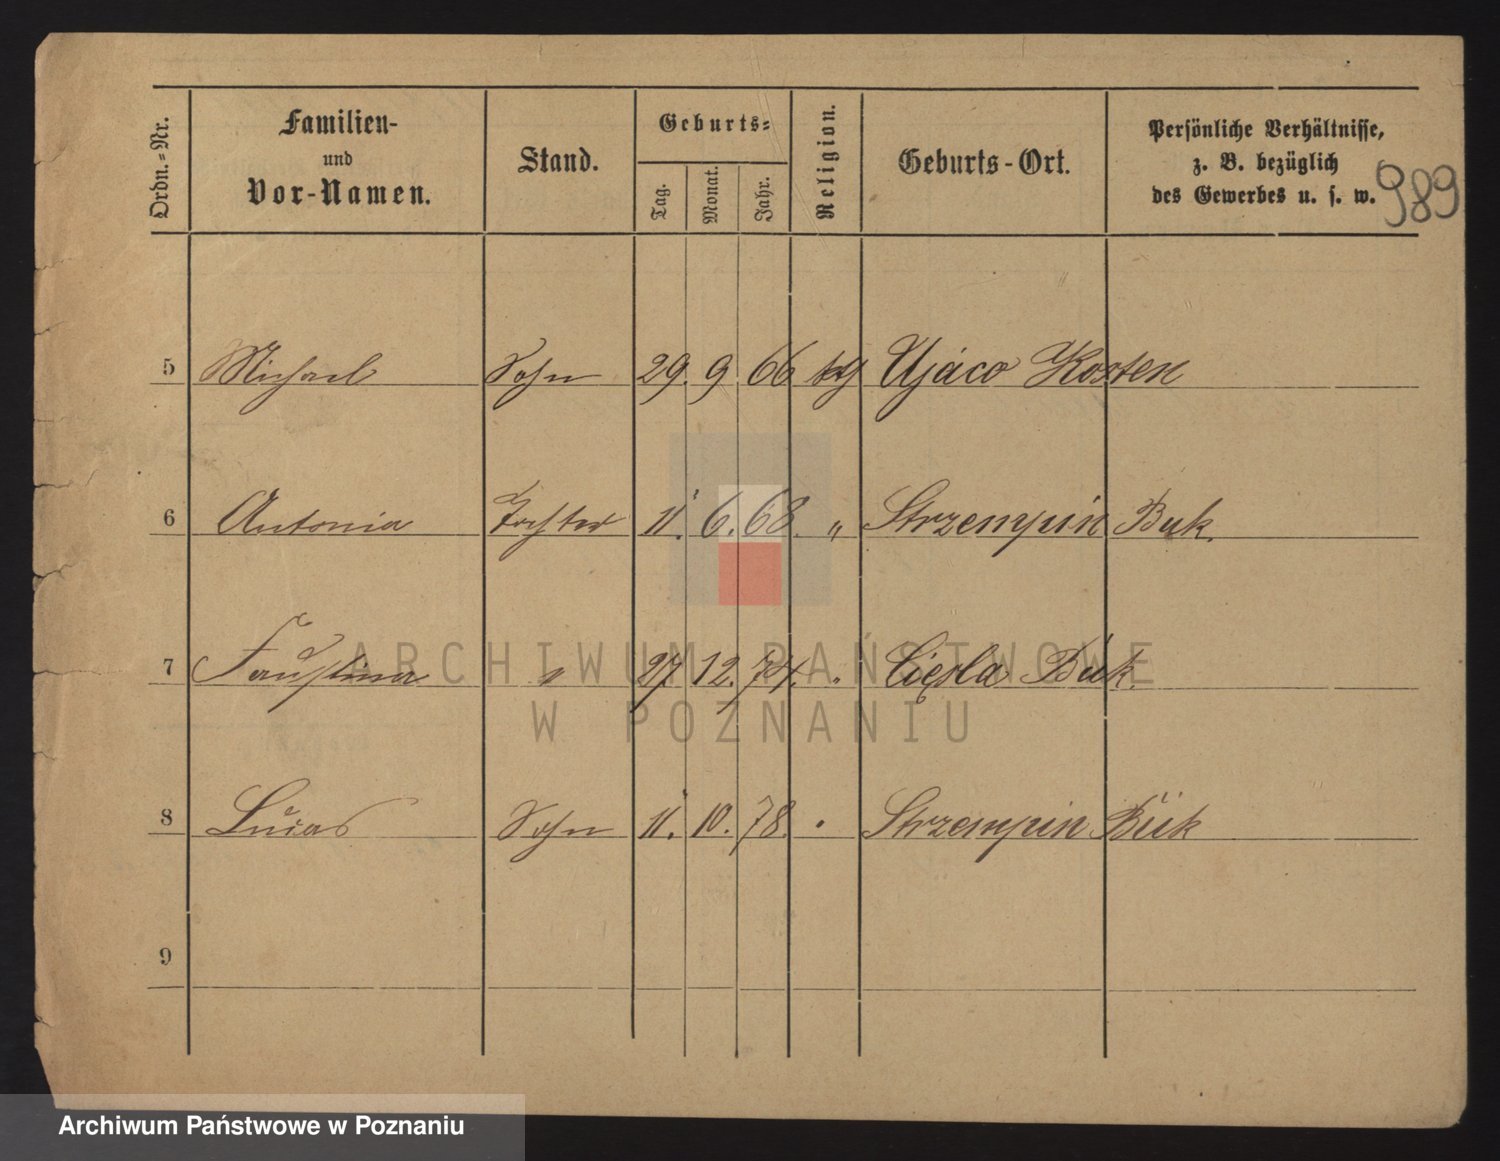 Ordn.=Nr.
Familien-
und
Vor-Namen.
Stand.
Geburts=
Tag.
Monat.
Jahr.
Religion.
Geburts-Ort.
Persönliche Verhältnisse,
z. B. bezüglich
des Gewerbes u. s. w.
989
5 Michael Sohn 29. 9. 66 Ujáco Kosten
6 Antonia Tochter 11. 6. 68. " Strzempin Buk.
7 Faustina " 27. 12. 74. " Cięsla Buk.
8 Lucas Sohn 11. 10. 78. " Strzempin Buk
9
ARCHIWUM PAŃSTWOWE
W POZNANIU
Archiwum Państwowe w Poznaniu